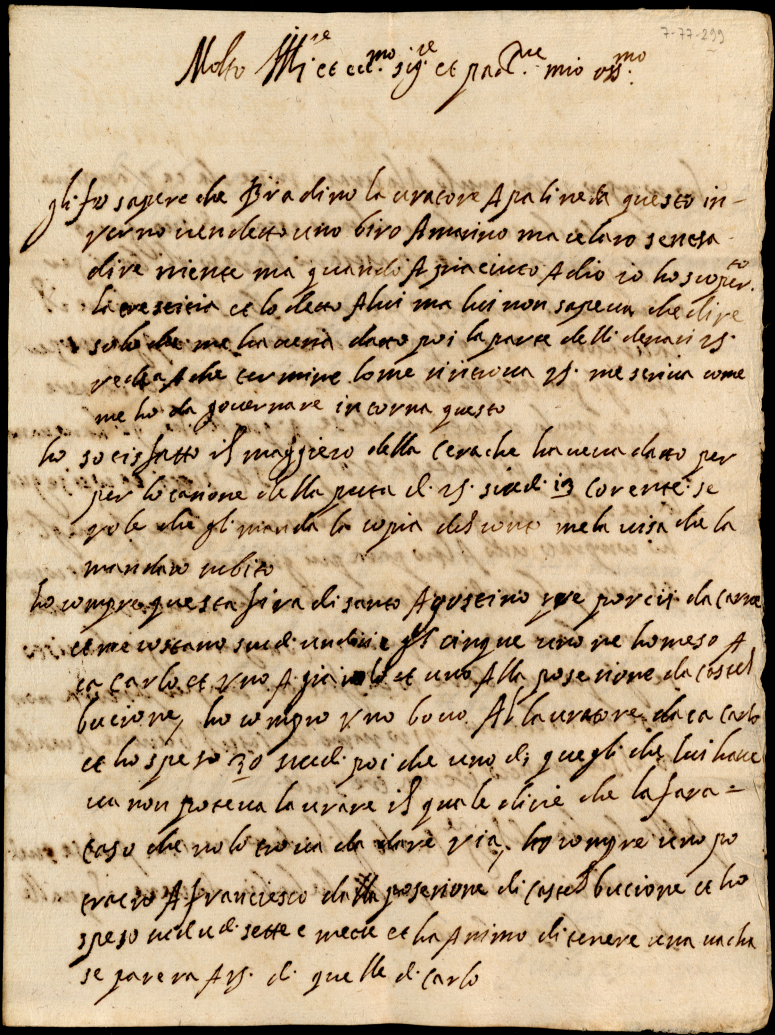 7-77-299
Molto Ill.re et ecc.mo sig.re et pad.ne mio oss.mo
gli fo sapere che Biradino lavratore A palineda questo in-
verno vendetto uno biro A marino macelaro sensa
dire niente ma quando A piaciuto A dio io ho scoperto
la trestitia et lo detto A lui ma lui non sapeva che dire
solo che me haveria dato poi la parte delli denari
che termine lo me me scriva come
me ho da governare intorna questo
ho sotisfatto il maggiero della cera che haveva dato per
per lo canone della scudi 13 corente se
vole che gli manda la copia del conto me la visa che la
mandaro subito
ho compre questa fira di santo Agustino tre porcii da carne
et me costano scudi undici e gli cinque uno ne ho meso A
ca Carlo et vno A et uno Alla posesione da castel
bucione, ho compro vno bovo Al lavratore da ca Carlo
et ho speso 30 scudi poi che uno di quegli che lui have
va non poteva lavrare il quale dicie che la fara=
caso che no lo trova da dare via, ho compre uno po
tracio A franciesco dalla posesione di castel bucione et ho
speso scudi sette e mecie et ha Animo di tenere una vacha
se parera A di quelle di Carlo